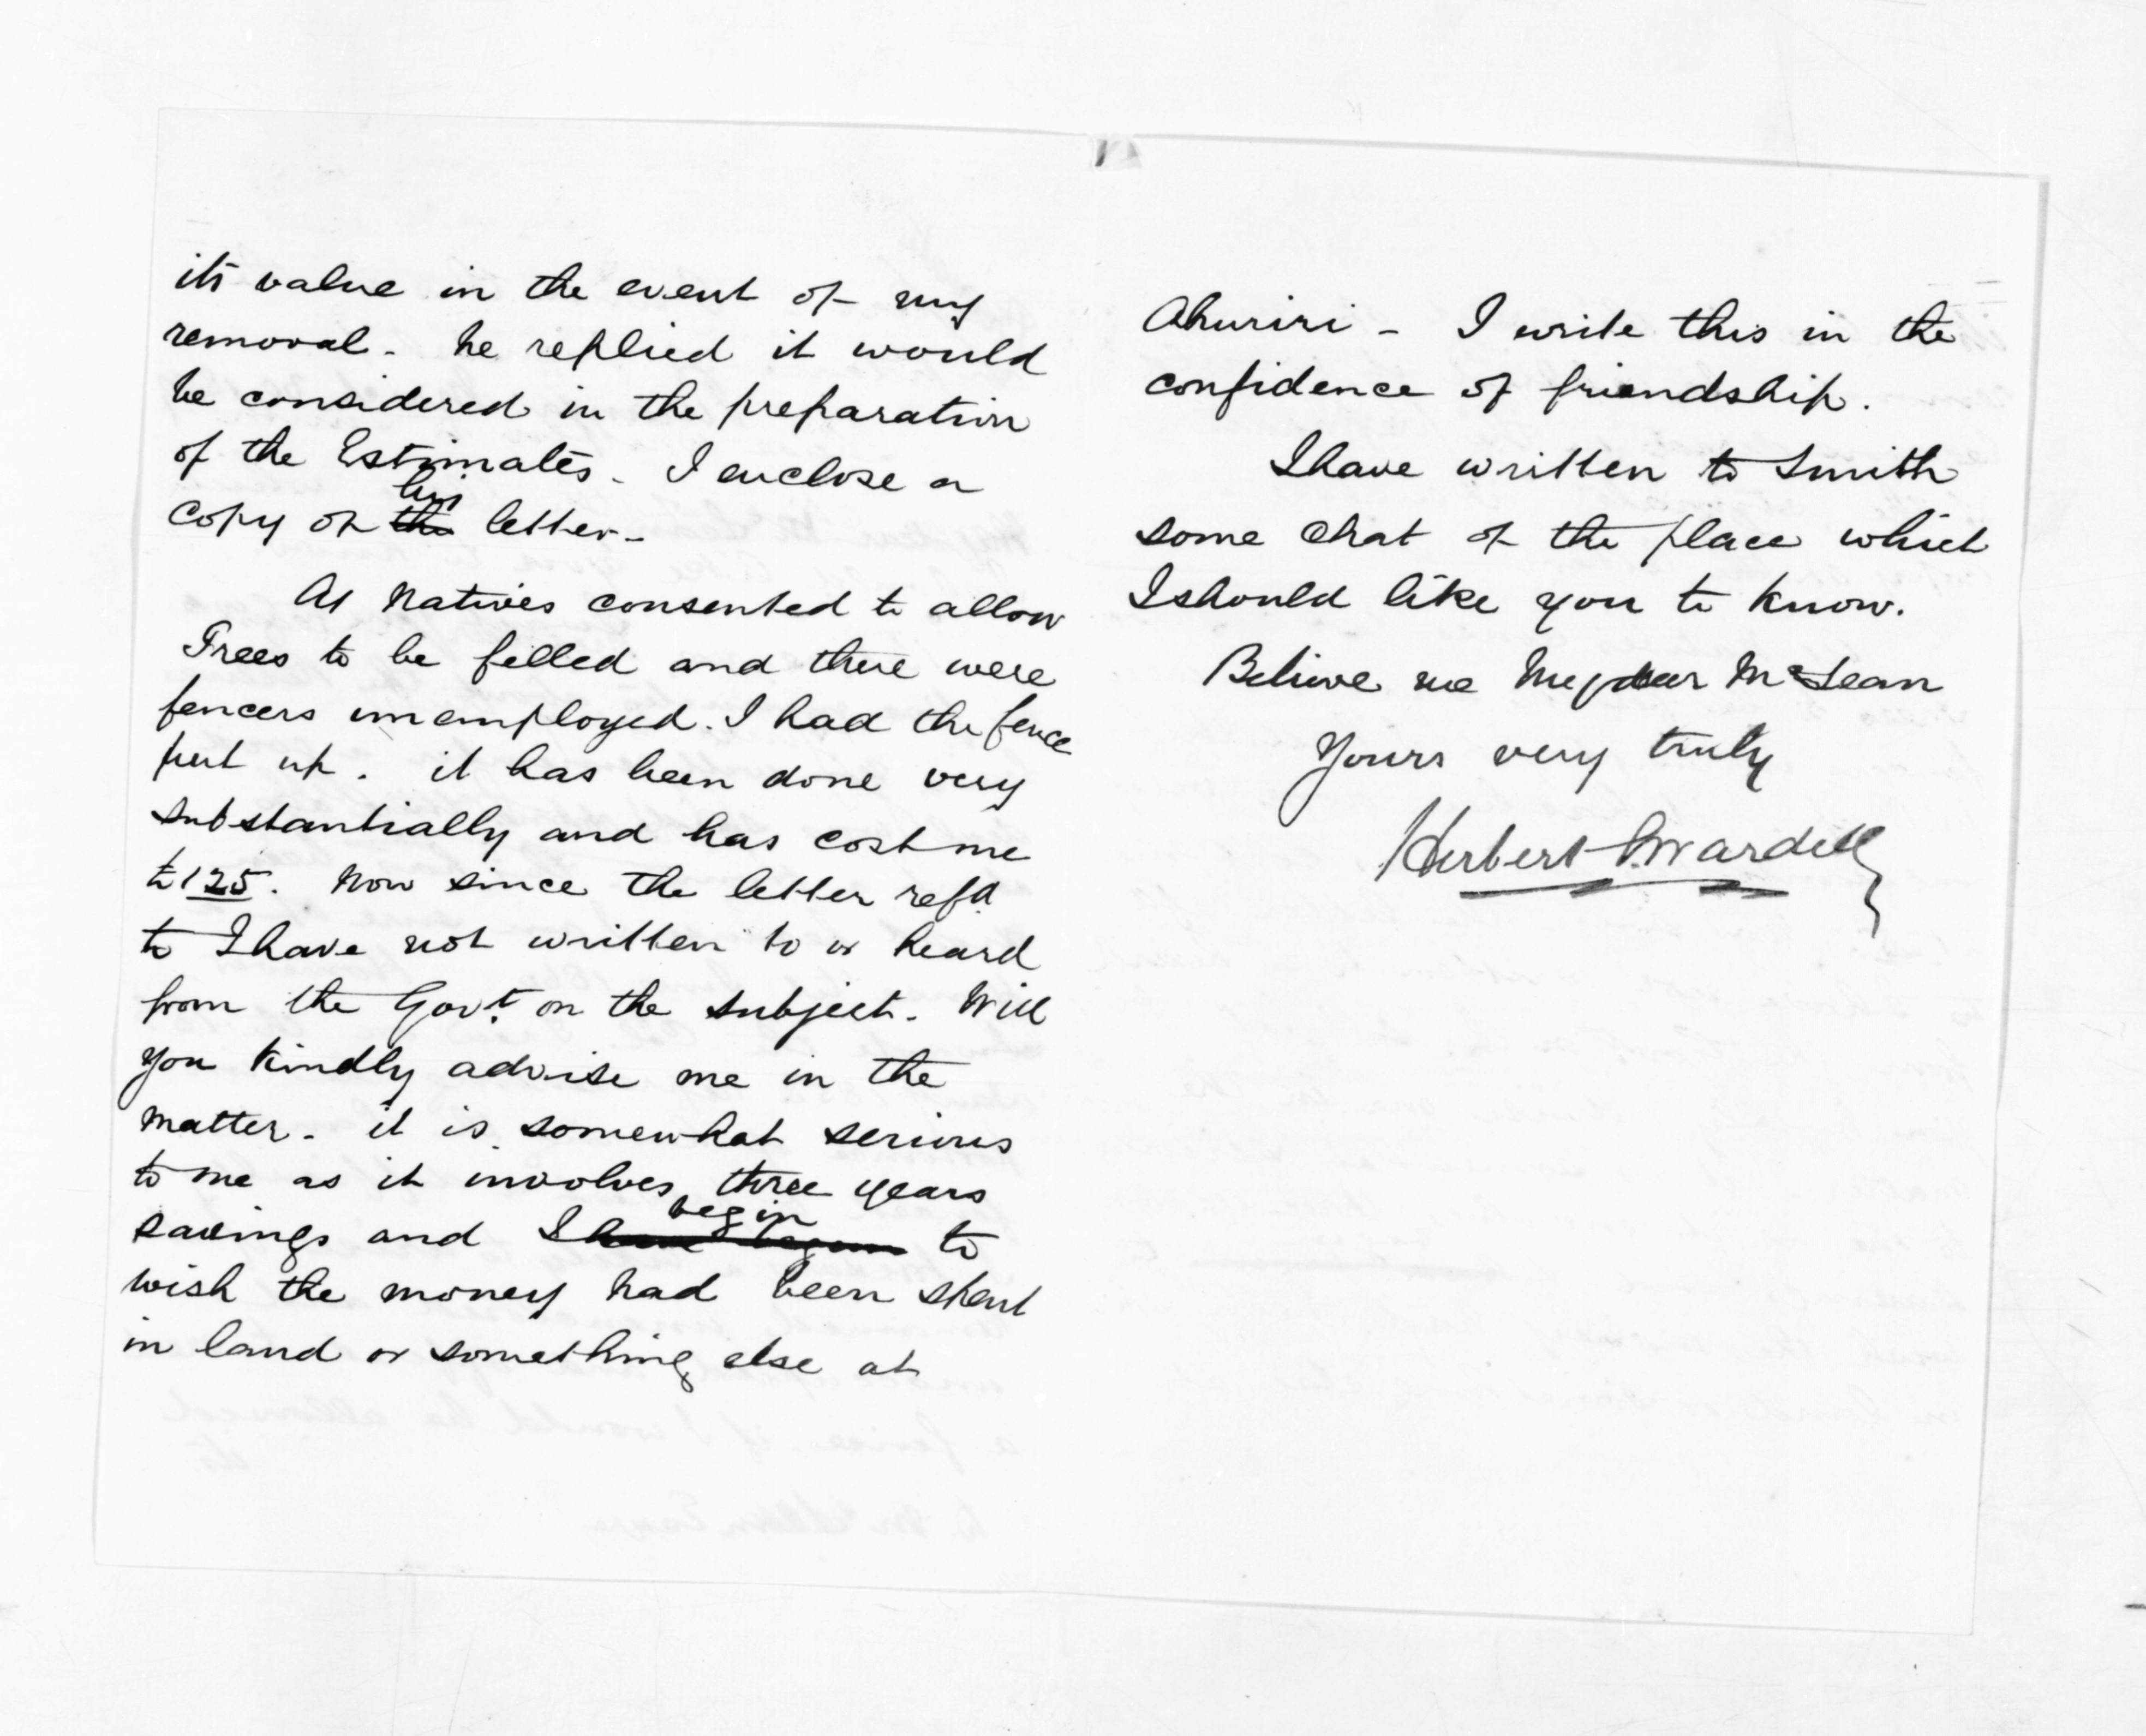 its value in the event of my
removal. he replied it would
be considered in the preparation
of the Estimates. I enclose a
copy of the his letter.
As Natives consented to allow
Trees to be felled and there were
fencers unemployed. I had the fence
put up. it has been done very
substantially and has cost me
£125. Now since the letter refd
to I have not written to or heard
from the Govt. on the subject. Will
you kindly advise me in the
matter. it is somewhat serious
to me as it involves three years
savings and I have begun begin to
wish the money had been spent
in land or something else at
Ahuriri - I write this in the
confidence of friendship.
I have written to Smith
some chat of the place which
I should like you to know.
Believe me My dear McLean
Yours very truly
Herbert S. Wardell